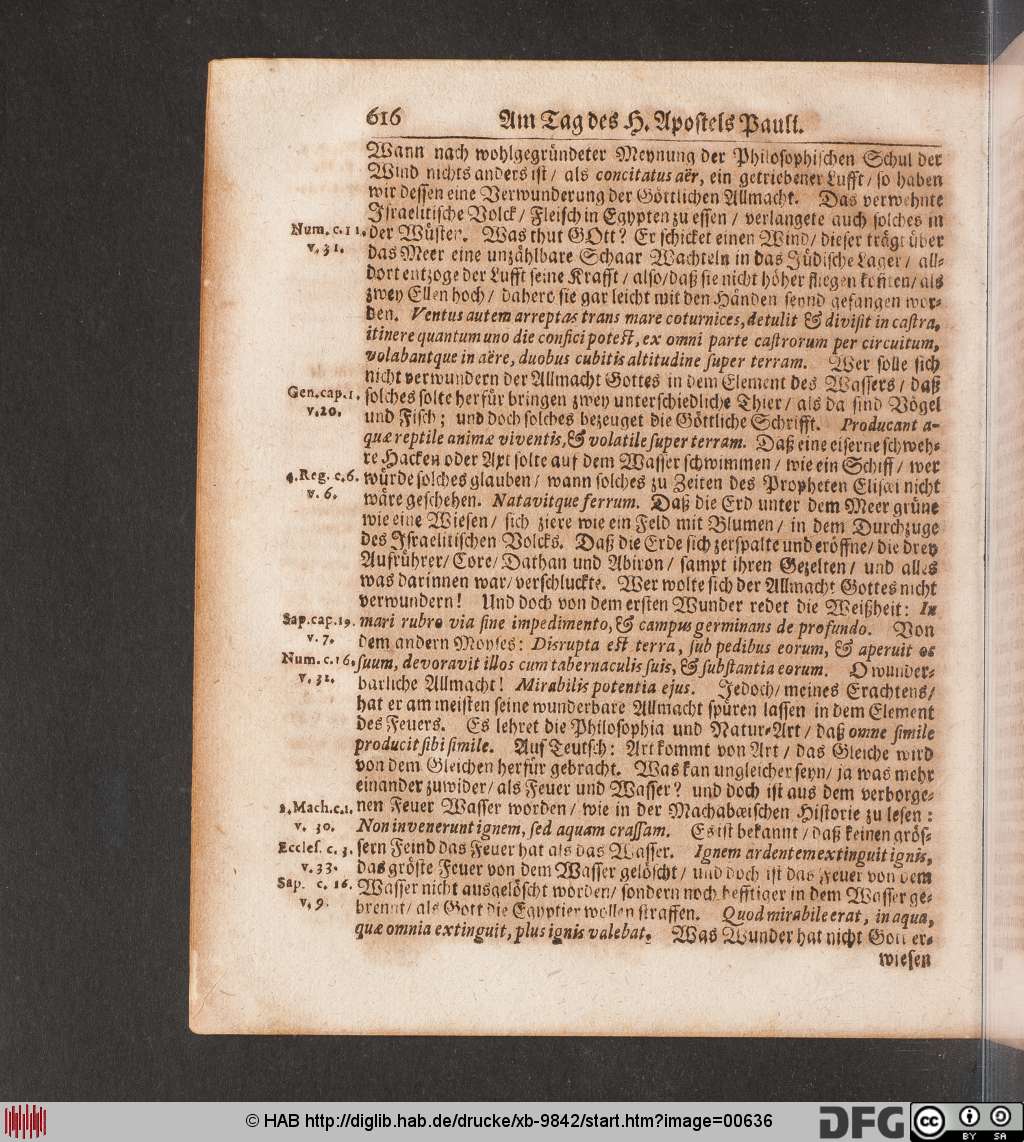 616 Am Tag des H. Apostels Pauli.
Wann nach wohlgegründeter Meynung der Philosophischen Schul der
Wind nichts anders ist / als concitatus aër, ein getriebener Lufft / so haben
wir dessen eine Verwunderung der Göttlichen Allmacht. Das verwehnte
Israelitische Volck / Fleisch in Egypten zu essen / verlangete auch solches in
Num. c. 11. der Wüsten. Was thut GOtt? Er schicket einen Wind / dieser trägt über
v. 31. das Meer eine unzählbare Schaar Wachteln in das Jüdische Lager / all-
dort entzoge der Lufft seine Krafft / also / daß sie nicht höher fliegen konten / als
zwey Ellen hoch / dahero sie gar leicht mit den Händen seynd gefangen wor-
den. Ventus autem arreptas trans mare coturnices, detulit & divisit in castra,
itinere quantum uno die confici potest, ex omni parte castrorum per circuitum,
volabantque in aëre, duobus cubitis altitudine super terram. Wer solle sich
nicht verwundern der Allmacht Gottes in dem Element des Wassers / daß
Gen. cap. 1. solches solte herfür bringen zwey unterschiedliche Thier / als da sind Vögel
v. 20. und Fisch; und doch solches bezeuget die Göttliche Schrifft. Producant a-
quæ reptile animæ viventis, & volatile super terram. Daß eine eiserne schweh-
re Hacken oder Axt solte auf dem Wasser schwimmen / wie ein Schiff / wer
4. Reg. c. 6. würde solches glauben / wann solches zu Zeiten des Propheten Elisæi nicht
v. 6. wäre geschehen. Natavitque ferrum. Daß die Erd unter dem Meer grüne
wie eine Wiesen / sich ziere wie ein Feld mit Blumen / in dem Durchzuge
des Israelitischen Volcks. Daß die Erde sich zerspalte und eröffne / die drey
Aufrührer / Core / Dathan und Abiron / sampt ihren Gezelten / und alles
was darinnen war / verschluckte. Wer wolte sich der Allmacht Gottes nicht
verwundern! Und doch von dem ersten Wunder redet die Weißheit: In
Sap. cap. 19. mari rubro via sine impedimento, & campus germinans de profundo. Von
v. 7. dem andern Moyses: Disrupta est terra, sub pedibus eorum, & aperuit os
Num. c. 16. suum, devoravit illos cum tabernaculis suis, & substantia eorum. O wunder-
v. 31. barliche Allmacht! Mirabilis potentia ejus. Jedoch / meines Erachtens /
hat er am meisten seine wunderbare Allmacht spüren lassen in dem Element
des Feuers. Es lehret die Philosophia und Natur-Art / daß omne simile
producit sibi simile. Auf Teutsch: Art kommt von Art / das Gleiche wird
von dem Gleichen herfür gebracht. Was kan ungleicher seyn / ja was mehr
einander zuwider / als Feuer und Wasser? und doch ist aus dem verborge-
2. Mach. c. 1. nen Feuer Wasser worden / wie in der Machabæischen Historie zu lesen:
v. 30. Non invenerunt ignem, sed aquam crassam. Es ist bekannt / daß keinen grös-
Eccles. c. 3. sern Feind das Feuer hat als das Wasser. Ignem ardentem extinguit ignis,
v. 33. das gröste Feuer von dem Wasser gelöscht / und doch ist das Feuer von dem
Sap. c. 16. Wasser nicht ausgelöscht worden / sondern noch hefftiger in dem Wasser ge-
v. 9. brennt / als Gott die Egyptier wollen straffen. Quod mirabile erat, in aqua,
quæ omnia extinguit, plus ignis valebat. Was Wunder hat nicht Gott er-
wiesen
© HAB http://diglib.hab.de/drucke/xb-9842/start.htm?image=00636
DFG
cc BY SA